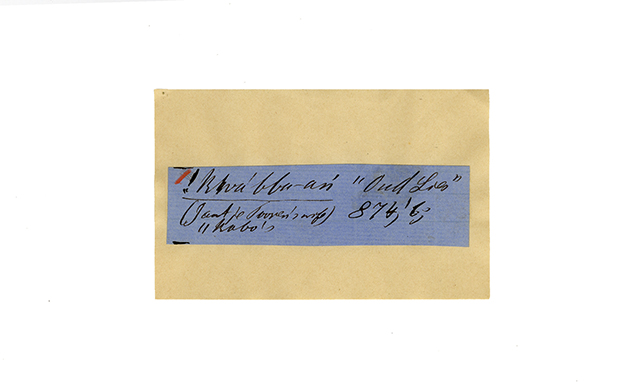 !Kwabba-an "Oud Lies"
(Jantje Tooren's wife) 874,
"Kabo's